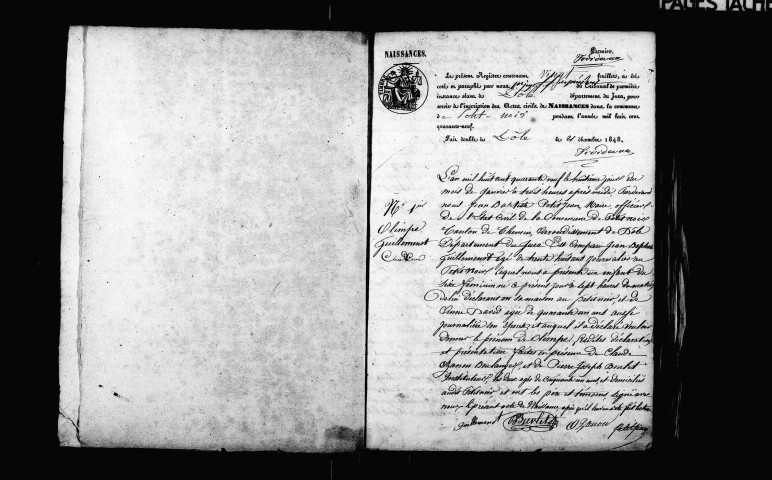 PAGES TACHE
NAISSANCES.
Premier
Le présent Registre contenant feuillets, a été
coté et paraphé par nous du Tribunal de première
instance séant à Dôle département du Jura, pour
servir à l'inscription des Actes civils de NAISSANCES dans la commune
de Petit noir pendant l'année mil huit cent
quarante-neuf.
Fait double à Dôle le 21 décembre 1848.
L'an mil huit cent quarante neuf le huitième jour du
mois de Janvier à trois heures après midi, Pardevant
nous Jean Baptiste Petit Jean Maire officier
de l'Etat Civil de la Commune de Petit noir
Canton de Chemin, Arrondissement de Dôle
Département du Jura Est Comparu Jean Baptiste
Guillemenot agé de trente huit ans Journalier au
Petit Noir lequel nous a présenté un enfant du
Sexe Féminin né ce présent jour à sept heures du matin
de lui déclarant en sa maison au petit noir, et de
David agée de quarante un ans aussi
Journalière son épouse et auquel il a déclaré vouloir
donner le prénom de Olimpe, Lesdites déclaration
et présentation faites en présence de Claude
Boulanger et de Pierre Joseph Burlet
Instituteur, les deux agés de Cinquante un ans et domiciliés
audit Petit noir et ont les père et témoins signé avec
nous le présent acte de Naissance après qu'il leur en a été fait lecture
Guillemenot Burlet
No 1er
Olimpe
Guillemenot